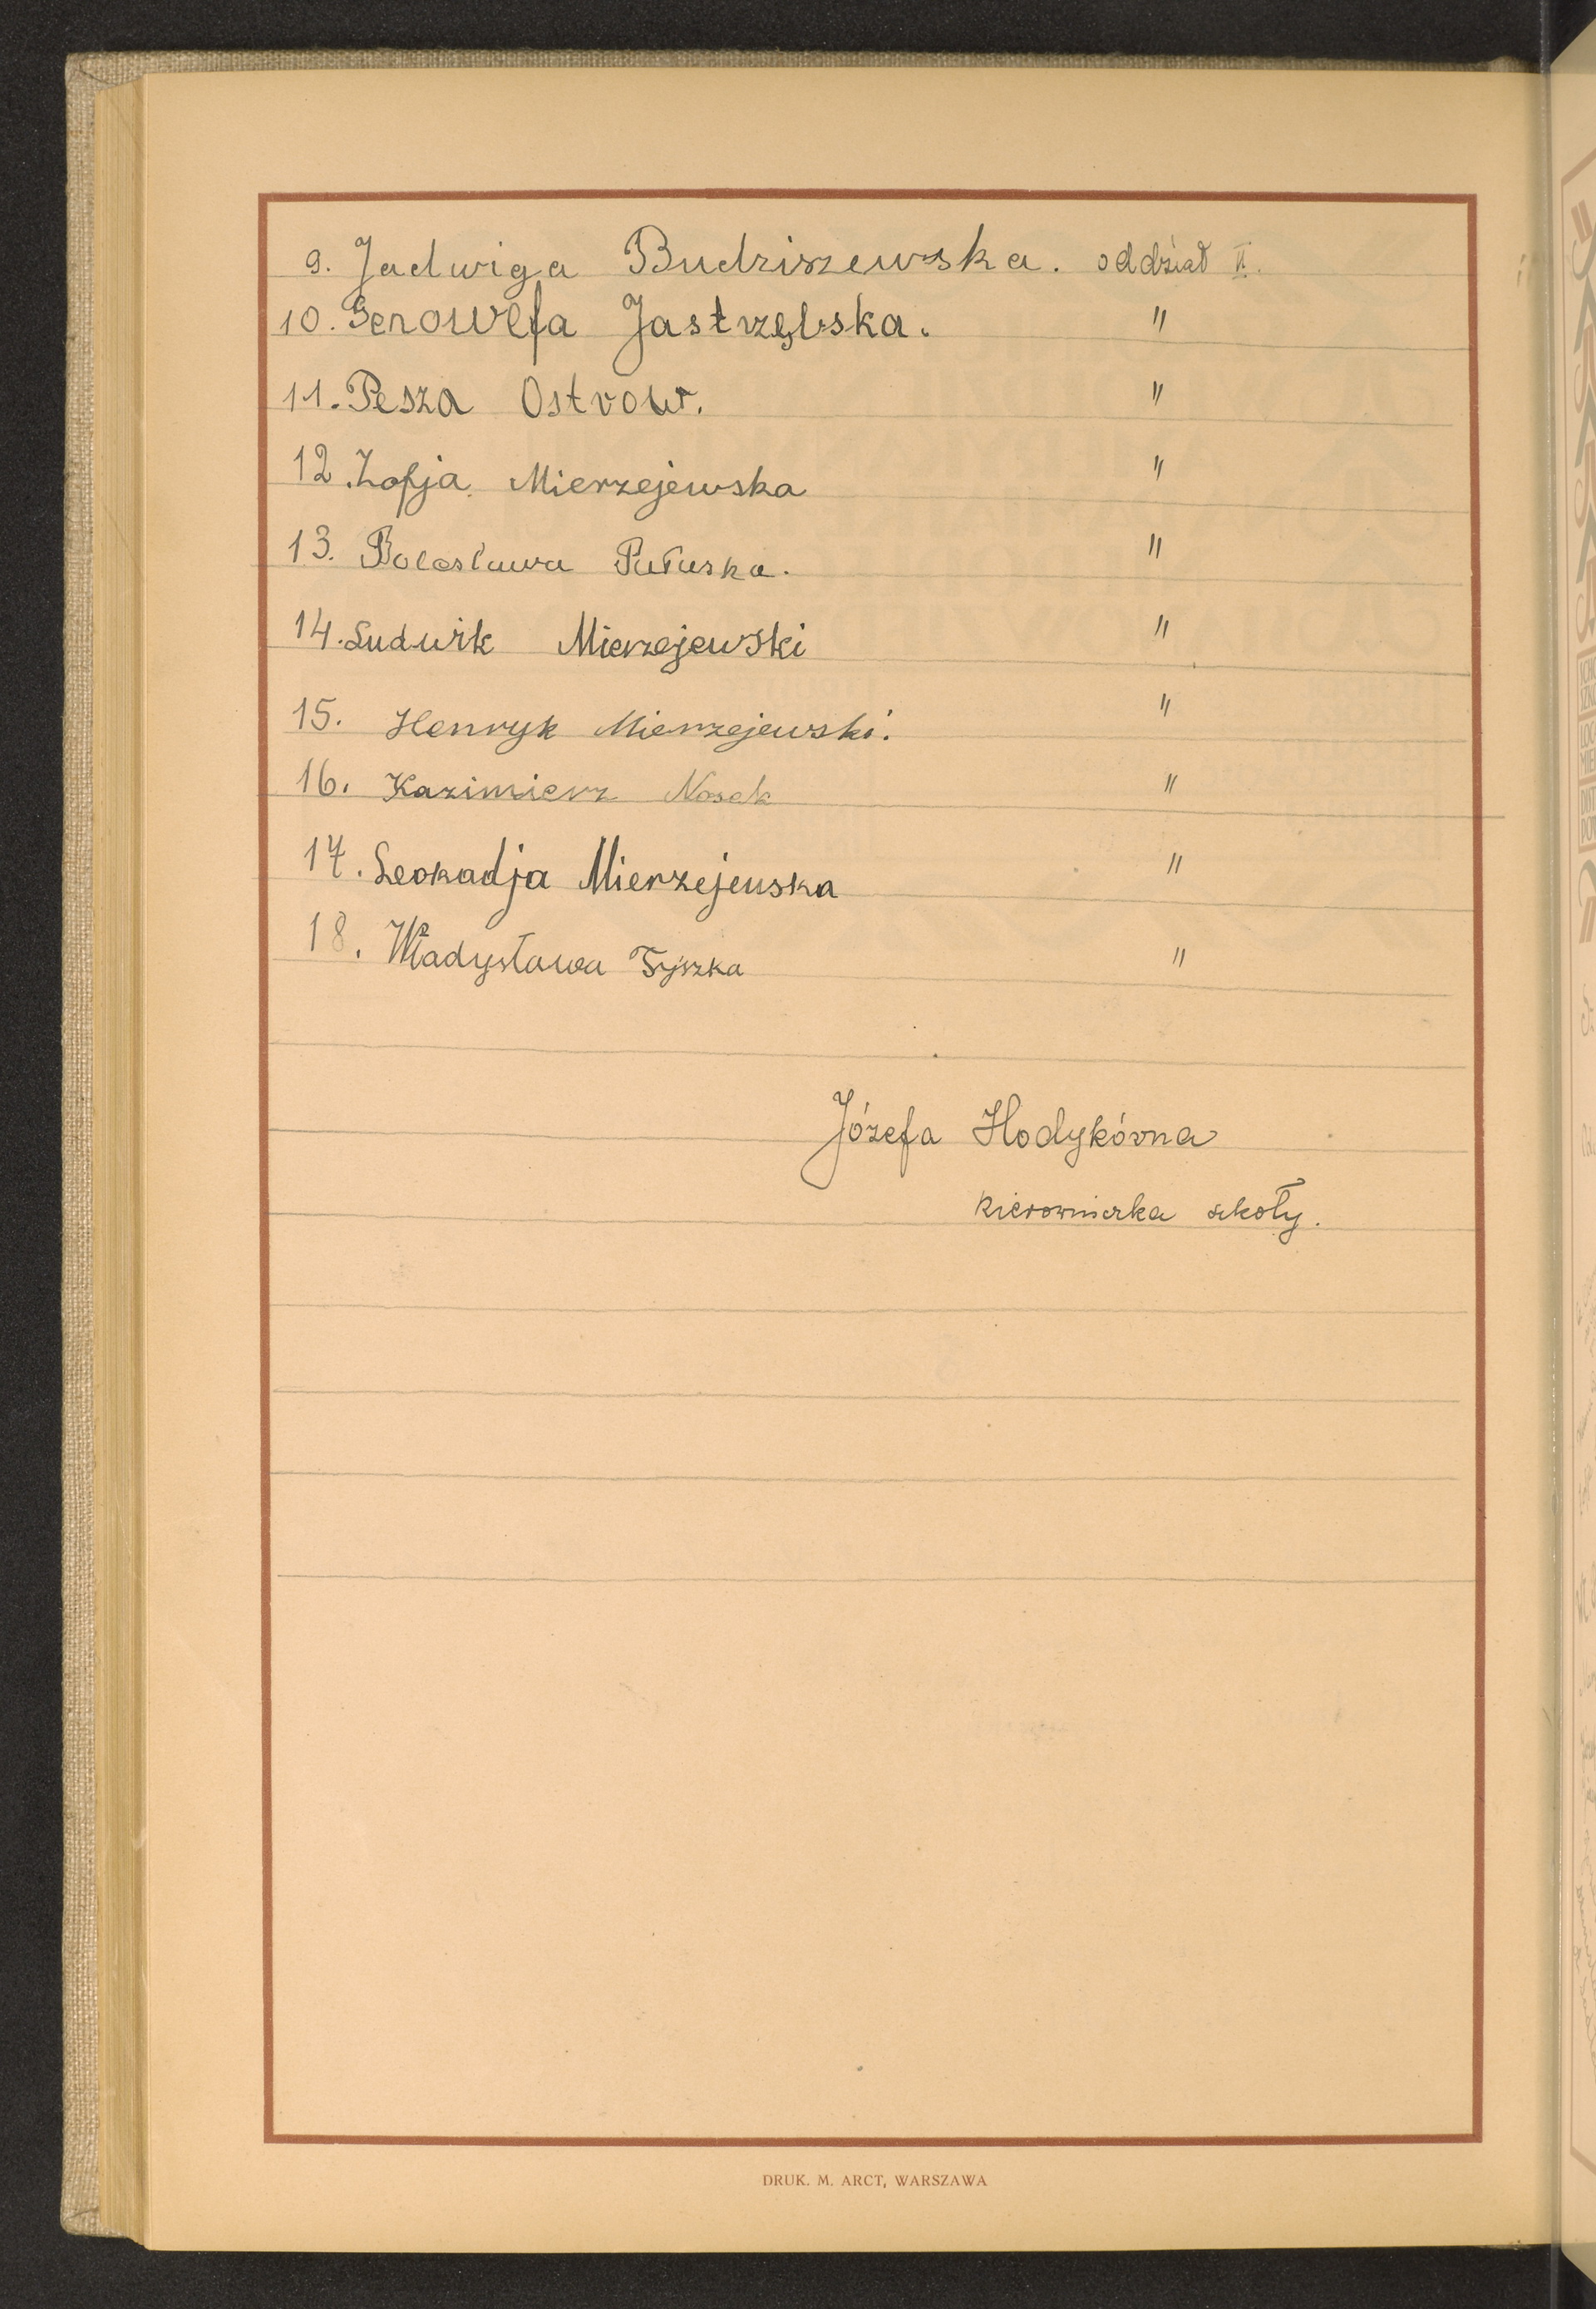 9. Jadwiga Budziszewska. oddział II.
10. Genowefa Jastrzębska. "
11. Pesza Ostrow. "
12. Zofja Mierzejewska "
13. Bolesława Pułuska. "
14. Ludwik Mierzejewski "
15. Henryk Mierzejewski. "
16. Kazimierz Nosek "
17. Leokadja Mierzejewska "
18. Władysława Tyszka "
Józefa Hodykówna
kierowniczka szkoły.
DRUK. M. ARCT, WARSZAWA